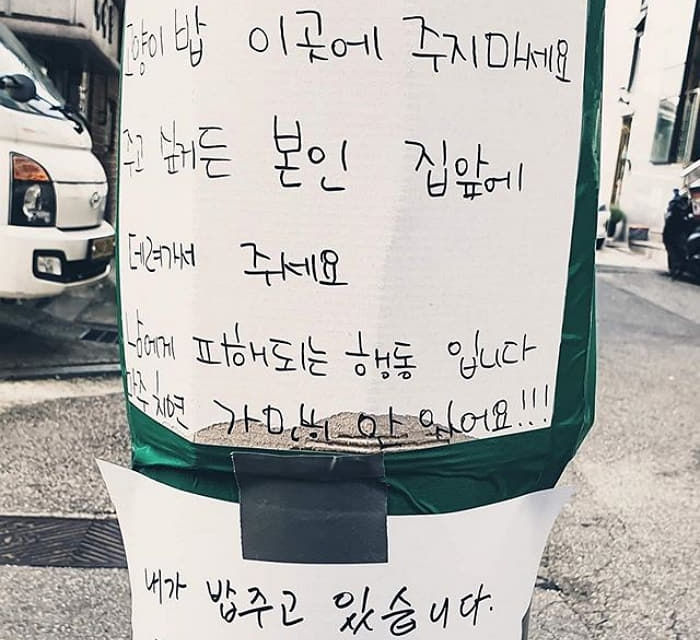 고양이 밥 이곳에 주지마세요
주고 싶거든 본인 집앞에
데려가서 주세요
남에게 피해되는 행동 입니다
마주치면 가만히 안 있어요!!!
내가 밥주고 있습니다.